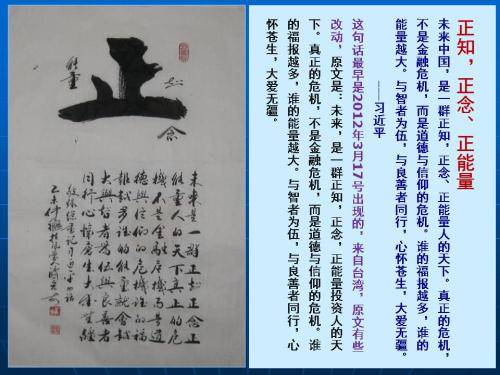 正知，正念、正能量
未来中国，是一群正知，正念、正能量人的天下。真正的危机，
不是金融危机，而是道德与信仰的危机。谁的福报越多，谁的
能量越大。与智者为伍，与良善者同行，心怀苍生，大爱无疆。
——习近平
这句话最早是2012年3月17号出现的，来自台湾，原文有些
改动，原文是：未来，是一群正知，正念，正能量投资人的天
下。真正的危机，不是金融危机，而是道德与信仰的危机。谁
的福报越多，谁的能量越大。与智者为伍，与良善者同行，心
怀苍生，大爱无疆。
正
知念
能量
未来是一群正知正念正
能量人的天下真正的危
机不是金融危机而是道
德与信仰的危机谁的福
报越多谁的能量就会越
大与智者为伍与良善者
同行心怀苍生大爱无疆